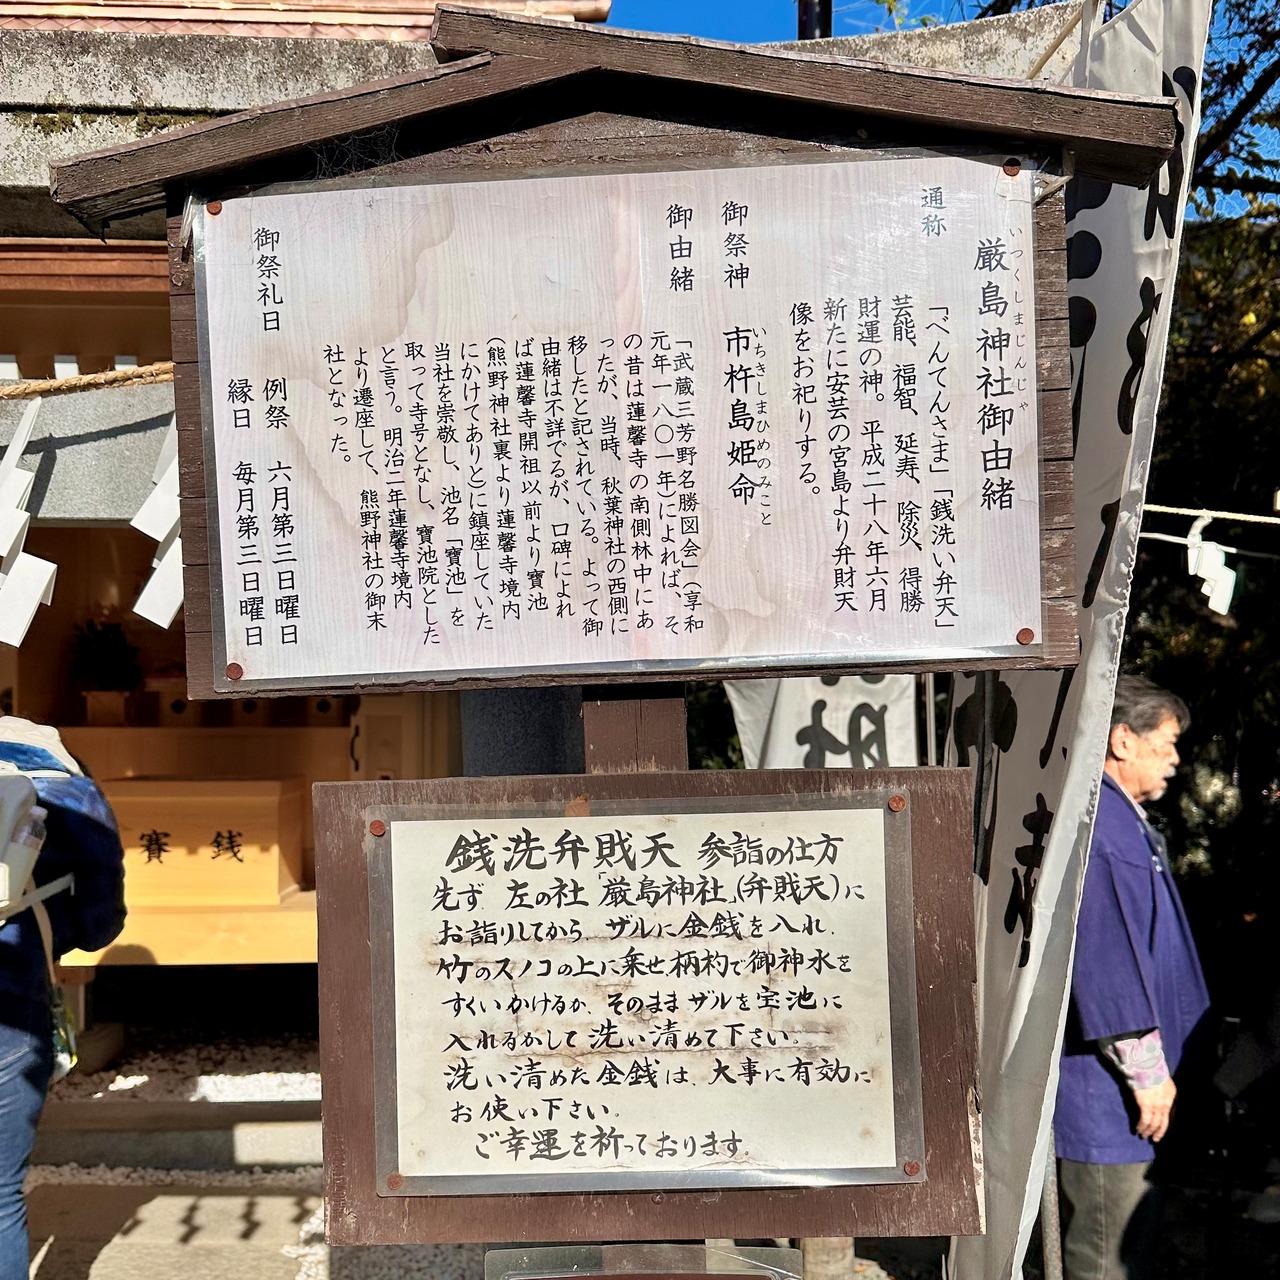 いつくしまじんじゃ
厳島神社御由緒
通称
「べんてんさま」「銭洗い弁天」
芸能、福智、延寿、除災、得勝
財運の神。平成二十八年六月
新たに安芸の宮島より弁財天
像をお祀りする。
御祭神
いちきしまひめのみこと
市杵島姫命
御由緒
「武蔵三芳野名勝図会」(享和
元年一八〇一年)によれば、そ
の昔は蓮馨寺の南側林中にあ
ったが、当時、秋葉神社の西側に
移したと記されている。よって御
由緒は不詳でるが、口碑によれ
ば蓮馨寺開祖以前より寶池
(熊野神社裏より蓮馨寺境内
にかけてありとに鎮座していた
当社を崇敬し、池名「寶池」を
取って寺号となし、寶池院とした
と言う。明治二年蓮馨寺境内
より遷座して、熊野神社の御末
社となった。
御祭礼日
例祭 六月第三日曜日
縁日 毎月第三日曜日
銭洗弁財天 参詣の仕方
先ず 左の社「厳島神社」(弁財天)に
お詣りしてから ザルに金銭を入れ
竹のスノコの上に乗せ、柄杓で御神水を
すくいかけるか、そのままザルを宝池に
入れるかして洗い清めて下さい。
洗い清めた金銭は、大事に有効に
お使い下さい。
ご幸運を祈っております。
賽銭
財